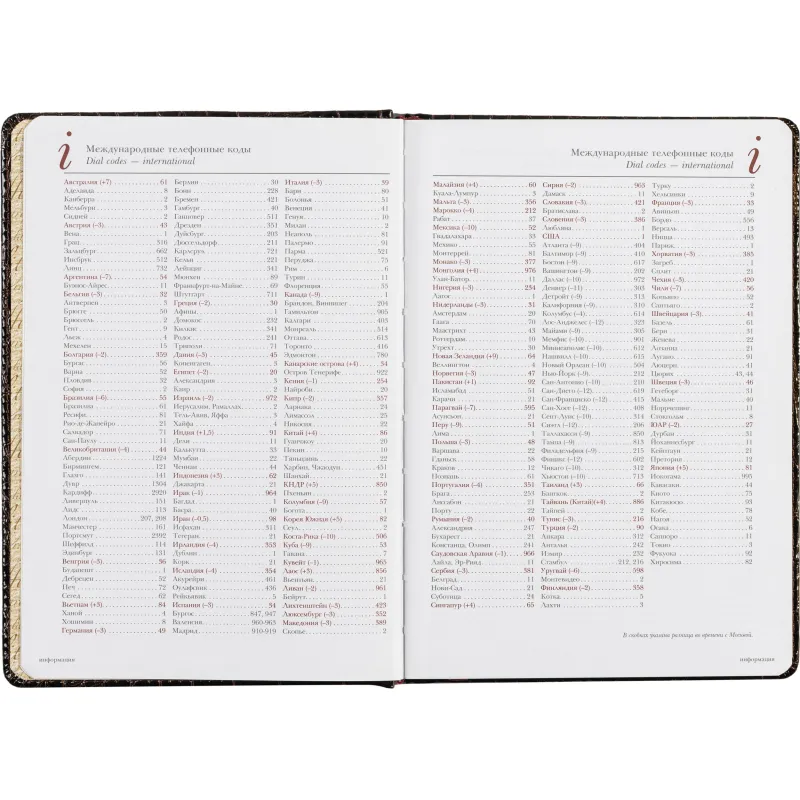 i
Международные телефонные коды
Dial codes — international
Австралия (+7) 61
Аделаида 8
Канберра 2
Мельбурн 3
Сидней 2
Австрия (–3) 43
Вена 1
Грац 316
Зальцбург 662
Инсбрук 512
Линц 732
Аргентина (–7) 54
Буэнос-Айрес 11
Бельгия (–3) 32
Антверпен 3
Брюгге 50
Брюссель 2
Гент 9
Льеж 4
Мехелен 15
Болгария (–2) 359
Бургас 56
Варна 52
Пловдив 32
София 2
Бразилия (–6) 55
Бразилиа 61
Ресифи 81
Рио-де-Жанейро 21
Салвадор 71
Сан-Паулу 11
Великобритания (–4) 44
Абердин 1224
Бирмингем 121
Глазго 141
Дувр 1304
Кардифф 2920
Ливерпуль 151
Лидс 113
Лондон 207, 208
Манчестер 161
Портсмут 2392
Шеффилд 114
Эдинбург 131
Венгрия (–3) 36
Будапешт 1
Дебрецен 52
Печ 72
Сегед 62
Вьетнам (+3) 84
Ханой 4
Хошимин 8
Германия (–3) 49
Берлин 30
Бонн 228
Бремен 421
Гамбург 40
Ганновер 511
Дрезден 351
Дуйсбург 203
Дюссельдорф 211
Карлсруэ 721
Кельн 221
Лейпциг 341
Мюнхен 89
Франкфурт-на-Майне 69
Штутгарт 711
Греция (–2) 30
Афины 1
Домокос 232
Килкис 341
Родос 241
Дания (–3) 45
Копенгаген 3
Египет (–2) 20
Александрия 3
Каир 2
Израиль (–2) 972
Иерусалим, Рамаллах 2
Тель-Авив, Яффа 3
Хайфа 4
Индия (+1,5) 91
Дели 11
Калькутта 33
Мумбаи 22
Ченнаи 44
Индонезия (+3) 62
Джакарта 21
Ирак (–1) 964
Багдад 1
Басра 40
Иран (–0,5) 98
Исфахан 311
Тегеран 21
Ирландия (–4) 353
Дублин 1
Корк 21
Исландия (–4) 354
Акурейри 461
Оулафсвик 436
Рейкьявик 5
Испания (–3) 34
Бургос 847, 947
Валенсия 960-963
Мадрид 910-919
Италия (–3) 39
Бари 80
Болонья 51
Венеция 41
Генуя 10
Милан 2
Неаполь 81
Палермо 91
Парма 521
Перуджа 75
Рим 6
Турин 11
Флоренция 55
Канада (–9) 1
Брандон, Виннипег 204
Гамильтон 905
Калгари 403
Монреаль 514
Оттава 613
Торонто 416
Эдмонтон 780
Канарские острова (+4) 34
Остров Тенерифе 922
Кения (–1) 254
Найроби 20
Кипр (–2) 357
Ларнака 24
Лимассол 25
Никосия 22
Китай (+4) 86
Гуанчжоу 20
Пекин 10
Тяньцзинь 22
Харбин, Чжаодун 451
Шанхай 21
КНДР (+5) 850
Пхеньян 2
Колумбия (–9) 57
Богота 1
Корея Южная (+5) 82
Сеул 2
Коста-Рика (–10) 506
Куба (–9) 53
Гавана 7
Кувейт (–1) 965
Лаос (+3) 856
Вьентьян 21
Ливан (–2) 961
Бейрут 1
Лихтенштейн (–3) 423
Люксембург (–3) 352
Македония (–3) 389
Скопье 2
информация
Международные телефонные коды
Dial codes — international
i
Малайзия (+4) 60
Куала-Лумпур 3
Мальта (–3) 356
Марокко (–4) 212
Рабат 37
Мексика (–10) 52
Гвадалахара 33
Мехико 55
Монтеррей 81
Монако (–3) 377
Монголия (+4) 976
Улан-Батор 11
Нигерия (–3) 234
Лагос 1
Нидерланды (–3) 31
Амстердам 20
Гаага 70
Маастрихт 43
Роттердам 10
Утрехт 30
Новая Зеландия (+9) 64
Веллингтон 4
Норвегия (–3) 47
Пакистан (+1) 92
Исламабад 51
Карачи 21
Парагвай (–7) 595
Асунсьон 21
Перу (–9) 51
Лима 1
Польша (–3) 48
Варшава 22
Гданьск 58
Краков 12
Познань 61
Португалия (–4) 351
Брага 253
Лиссабон 21
Порту 22
Румыния (–2) 40
Александрия 247
Бухарест 21
Констанца, Олимп 241
Саудовская Аравия (–1) 966
Лайла, Эр-Рияд 11
Сербия (–3) 381
Белград 11
Нови-Сад 21
Суботица 24
Сингапур (+4) 65
Сирия (–2) 963
Дамаск 11
Словакия (–3) 421
Братислава 2
Словения (–3) 386
Любляна 1
США 1
Атланта (–9) 404
Балтимор (–9) 410
Бостон (–9) 617
Вашингтон (–9) 202
Даллас (–10) 972
Денвер (–11) 303
Детройт (–9) 313
Калифорния (–9) 310
Колумбус (–9) 614
Лос-Анджелес (–12) 323
Майами (–9) 305
Мемфис (–10) 901
Миннеаполис (–10) 612
Нашвилл (–10) 615
Новый Орлеан (–10) 504
Нью-Йорк (–9) 212
Сан-Антонио (–10) 210
Сан-Диего (–12) 619
Сан-Франциско (–12) 415
Сан-Хосе (–12) 408
Сент-Луис (–10) 314
Сиэтл (–12) 206
Таллахасси (–9) 850
Тампа (–9) 813
Филадельфия (–9) 215
Финикс (–12) 602
Чикаго (–10) 312
Хьюстон (–10) 713
Таиланд (+3) 66
Бангкок 2
Тайвань (Китай)(+4) 886
Тайпей 2
Тунис (–3) 216
Турция (–2) 90
Анкара 312
Анталья 242
Измир 232
Стамбул 212, 216
Уругвай (–6) 598
Монтевидео 2
Финляндия (–2) 358
Котка 5
Лахти 3
Турку 2
Хельсинки 9
Франция (–3) 33
Авиньон 49
Бордо 556
Версаль 13
Ницца 493
Париж 1
Хорватия (–3) 385
Загреб 1
Сплит 21
Чехия (–3) 420
Чили (–7) 56
Кокимбо 52
Сантьяго 2
Швейцария (–3) 41
Базель 61
Берн 31
Женева 22
Лозанна 21
Лугано 91
Люцерн 41
Цюрих 43, 44
Швеция (–3) 46
Гетеборг 31
Мальме 40
Норрчепинг 11
Стокгольм 8
ЮАР (–2) 27
Дурбан 31
Йоханнесбург 11
Кейптаун 21
Претория 12
Япония (+5) 81
Иокогама 995
Кавасаки 44
Киото 75
Китакюсю 93
Кобе 78
Нагоя 52
Осака 6
Саппоро 11
Токио 3
Фукуока 92
Хиросима 82
В скобках указана разница во времени с Москвой.
информация